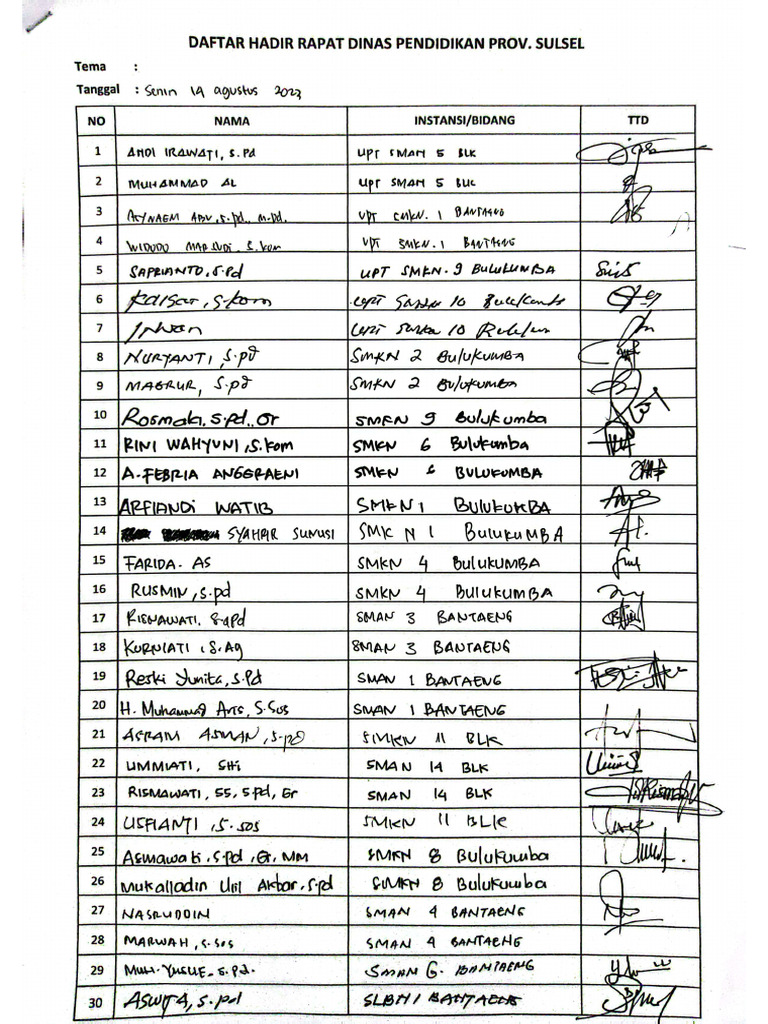 DAFTAR HADIR RAPAT DINAS PENDIDIKAN PROV. SULSEL
Tema :
Tanggal : Senin 14 agustus 2023
NO NAMA INSTANSI/BIDANG TTD
1 ANDI IRAWATI, S.Pd UPT SMAN 5 BLK
2 MUHAMMAD AL UPT SMAN 5 BLK
3 S.pd., M.Pd. UPT SMKN. 1 BANTAENG
4 WIDODO MARSUDI, S.kom UPT SMKN. 1 BANTAENG
5 SAPRIANTO, S.Pd UPT SMKN. 9 BULUKUMBA
6 Kaisar, S.kom UPT 10
7 Irwan UPT 10
8 NURYANTI, S.pd SMKN 2 BulUKUMBA
9 MABRUR, S.pd SMKN 2 BulUKUMBA
10 Rosmala, S.pd., Gr SMKN 9 Bulukumba
11 RINI WAHYUNI, S.kom SMKN 6 Bulukumba
12 A. FEBRIA ANGGRAENI SMKN 6 BULUKUMBA
13 ARFIANDI WATIB SMKN 1 BULUKUMBA
14 SYAHRIR SUNUSI SMK N 1 BulUKUMBA
15 FARIDA. AS SMKN 4 BulUKUMBA
16 RUSMIN, S.pd SMKN 4 BulUKUMBA
17 RISNAWATI. S.apd SMAN 3 BANTAENG
18 KURNIATI, S.Ag SMAN 3 BANTAENG
19 Reski Yunita, S.Pd SMAN 1 BANTAENG
20 H. Muhammad Aris, S.Sos SMAN 1 BANTAENG
21 ASRAM ASMAN, S.pd SMKN 11 BLK
22 UMMIATI, SHi SMAN 14 BLK
23 RISMAWATI, SS, S.Pd, Gr SMAN 14 BLK
24 USFIANTI, S.SOS SMKN 11 BLK
25 Asmawati. S.pd, Gr, MM SMKN 8 Bulukumba
26 Mukalladin Ulil Akbar, S.pd SMKN 8 Bulukumba
27 NASRUDDIN SMAN 4 BANTAENG
28 MARWAH, S.SOS SMAN 4 BANTAENG
29 MUH. YUSUF, S.Pd. SMAN 6. BANTAENG
30 ASWITA, S.pd SLBN 1 BANTAENG